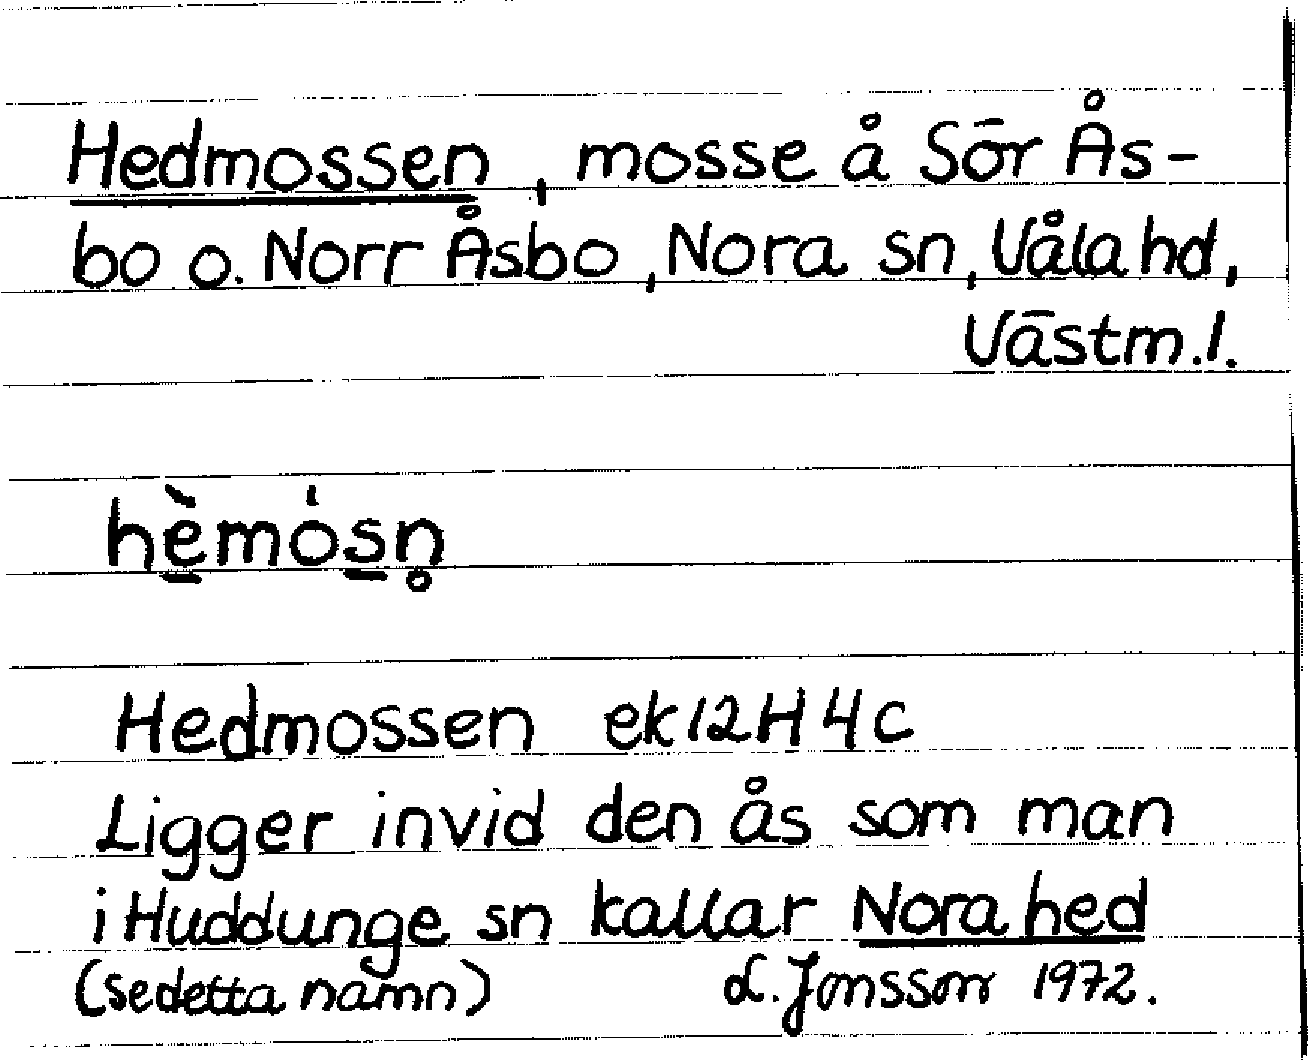 Hedmossen, mosse å Sör Ås-
bo o. Norr Åsbo, Nora sn, Våla hd,
Västm.l.
hè̱mós̱n̥
Hedmossen ek 12H 4c
Ligger invid den ås som man
i Huddunge sn kallar Nora hed
(se detta namn) L. Jonsson 1972.